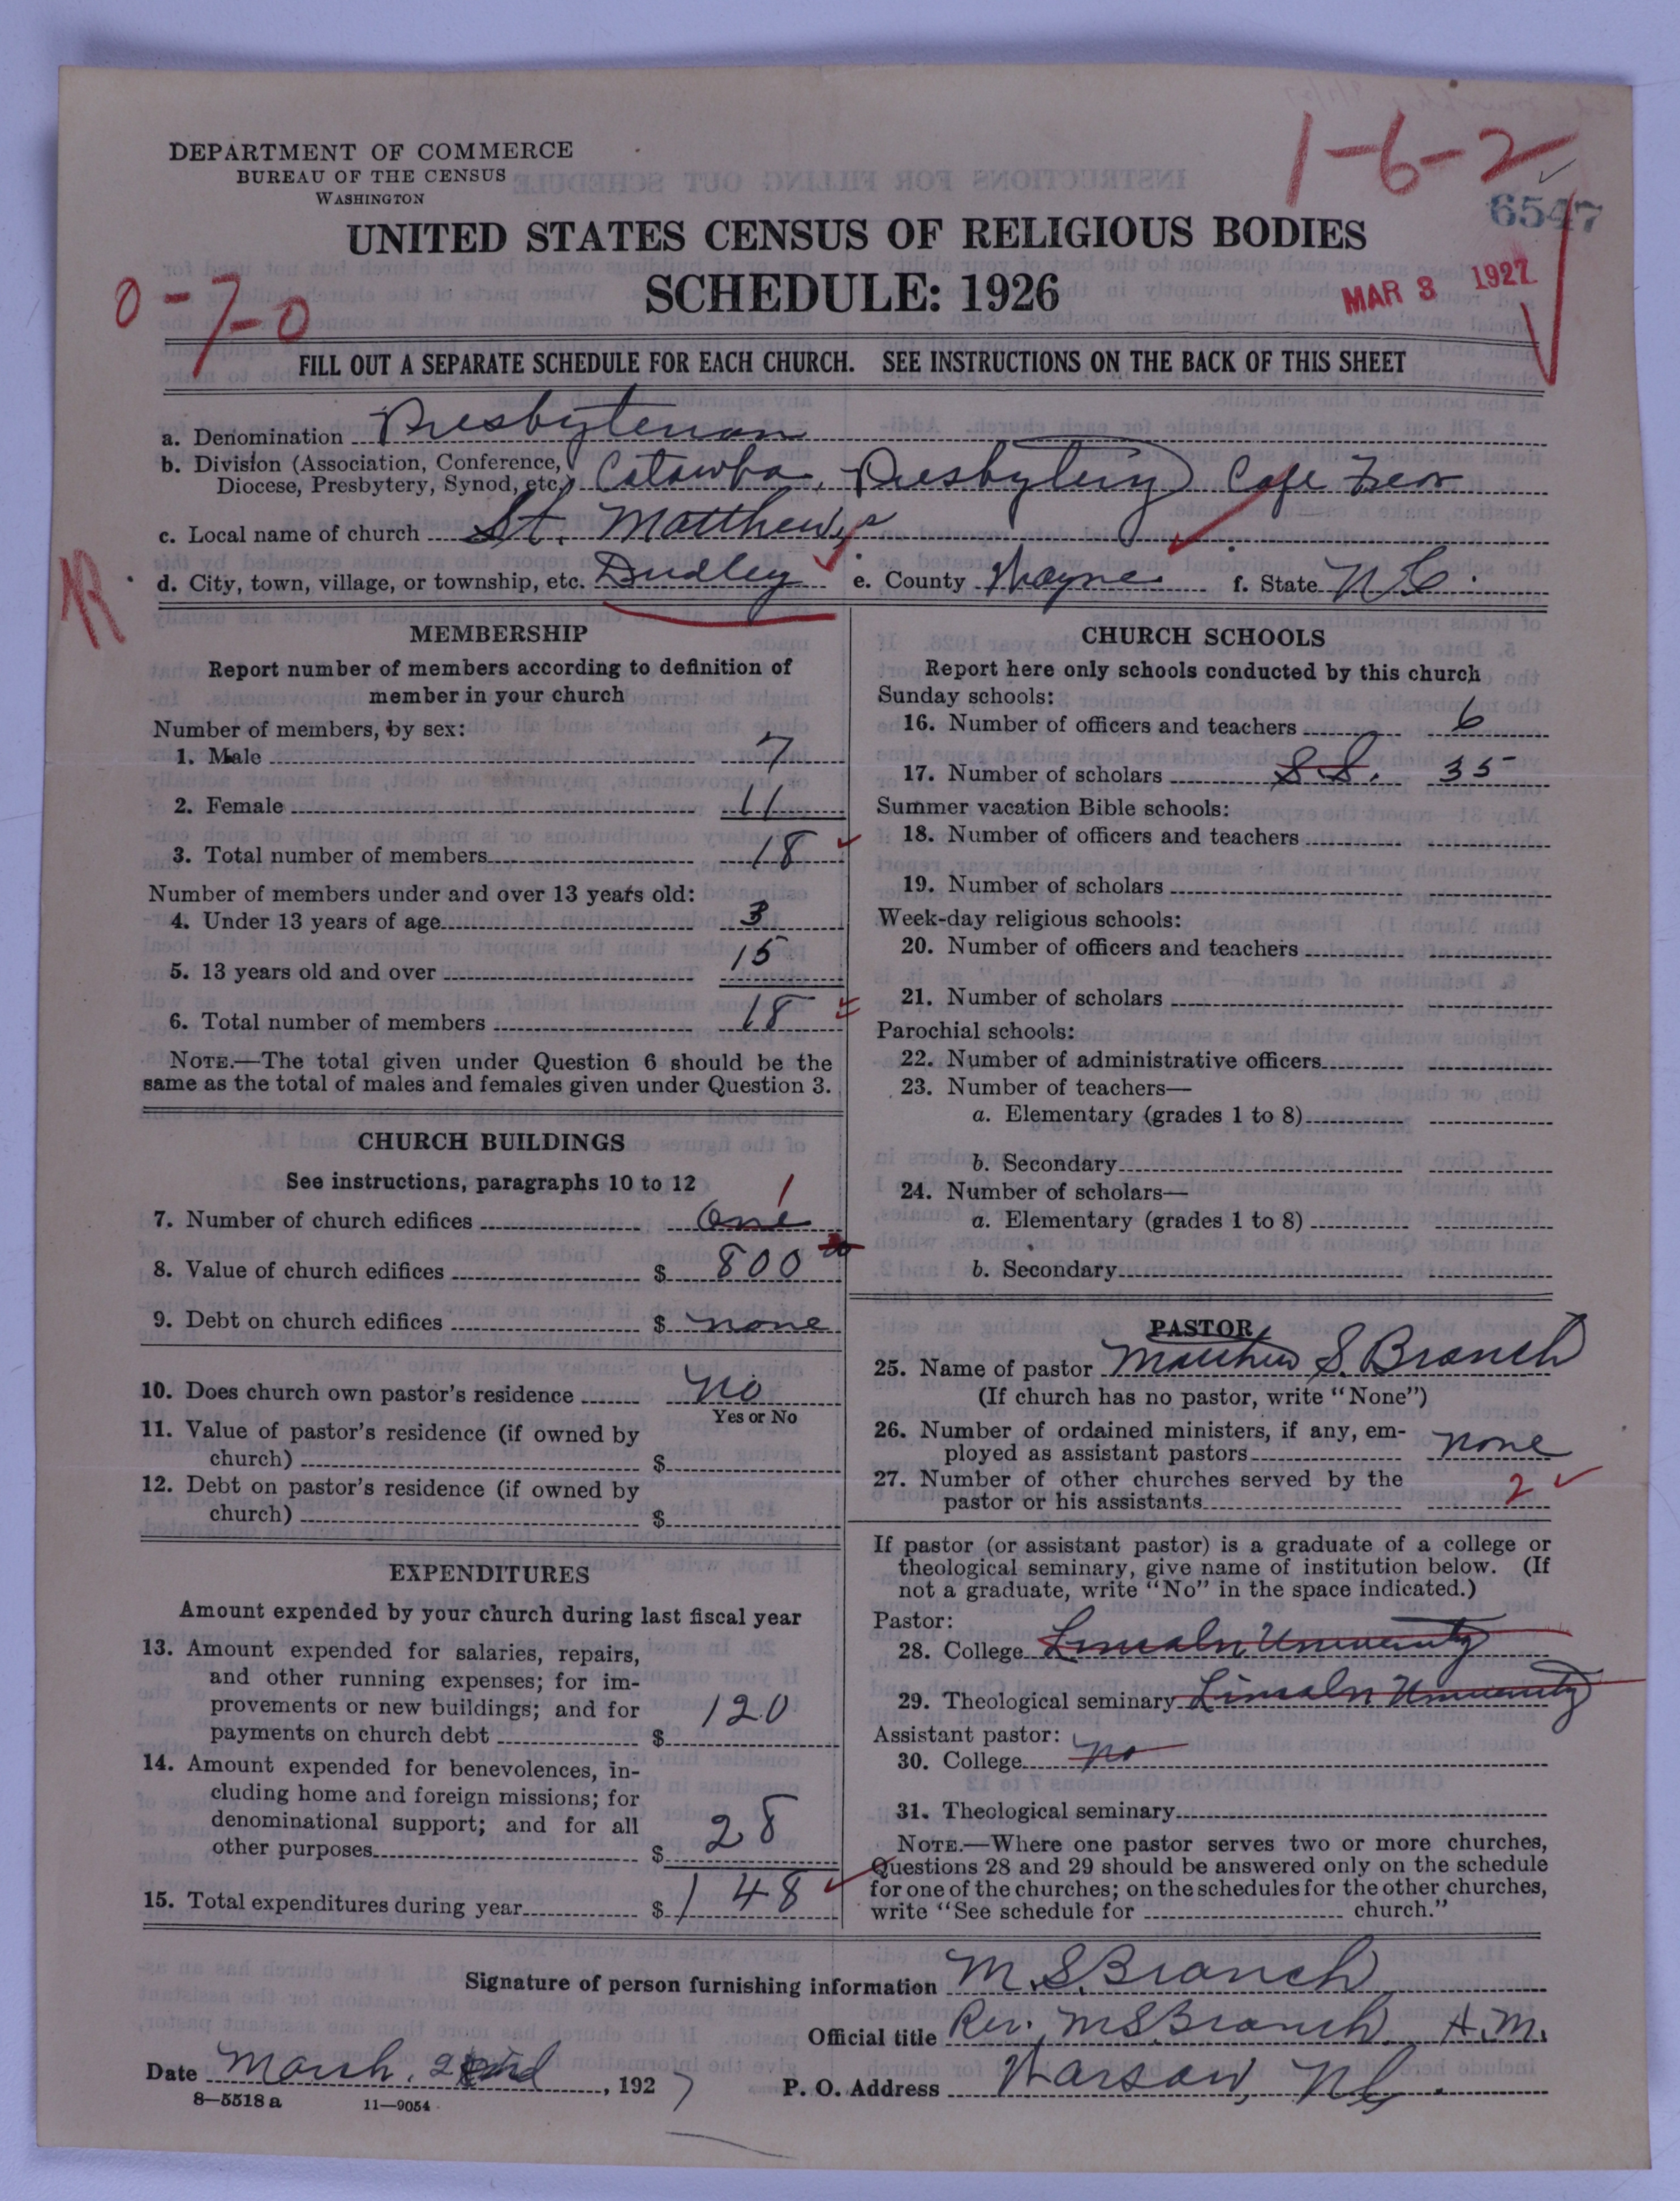 DEPARTMENT OF COMMERCE
BUREAU OF THE CENSUS
WASHINGTON
1-6-2
6547
UNITED STATES CENSUS OF RELIGIOUS BODIES
SCHEDULE: 1926
MAR 3 1927
0-7-0
FILL OUT A SEPARATE SCHEDULE FOR EACH CHURCH. SEE INSTRUCTIONS ON THE BACK OF THIS SHEET
a. Denomination Presbyterian
b. Division (Association, Conference,
Diocese, Presbytery, Synod, etc.) Catawba, Presbytery Cape Fear
c. Local name of church St. Matthews
d. City, town, village, or township, etc. Dudley e. County Wayne f. State N.C.
MEMBERSHIP
Report number of members according to definition of
member in your church
Number of members, by sex:
1. Male 7
2. Female 11
3. Total number of members 18
Number of members under and over 13 years old:
4. Under 13 years of age 3
5. 13 years old and over 15
6. Total number of members 18
NOTE.—The total given under Question 6 should be the
same as the total of males and females given under Question 3.
CHURCH BUILDINGS
See instructions, paragraphs 10 to 12
7. Number of church edifices One 1
8. Value of church edifices $ 800
9. Debt on church edifices $ none
10. Does church own pastor's residence No
Yes or No
11. Value of pastor's residence (if owned by
church) $
12. Debt on pastor's residence (if owned by
church) $
EXPENDITURES
Amount expended by your church during last fiscal year
13. Amount expended for salaries, repairs,
and other running expenses; for im-
provements or new buildings; and for
payments on church debt $ 120
14. Amount expended for benevolences, in-
cluding home and foreign missions; for
denominational support; and for all
other purposes $ 28
15. Total expenditures during year $ 148
CHURCH SCHOOLS
Report here only schools conducted by this church
Sunday schools:
16. Number of officers and teachers 6
17. Number of scholars S.S. 35
Summer vacation Bible schools:
18. Number of officers and teachers
19. Number of scholars
Week-day religious schools:
20. Number of officers and teachers
21. Number of scholars
Parochial schools:
22. Number of administrative officers
23. Number of teachers—
a. Elementary (grades 1 to 8)
b. Secondary
24. Number of scholars—
a. Elementary (grades 1 to 8)
b. Secondary
PASTOR
25. Name of pastor Matthew S. Branch
(If church has no pastor, write "None")
26. Number of ordained ministers, if any, em-
ployed as assistant pastors none
27. Number of other churches served by the
pastor or his assistants 2
If pastor (or assistant pastor) is a graduate of a college or
theological seminary, give name of institution below. (If
not a graduate, write "No" in the space indicated.)
Pastor:
28. College Lincoln University
29. Theological seminary Lincoln University
Assistant pastor:
30. College no
31. Theological seminary
NOTE.—Where one pastor serves two or more churches,
Questions 28 and 29 should be answered only on the schedule
for one of the churches; on the schedules for the other churches,
write "See schedule for church."
Signature of person furnishing information M. S. Branch
Official title Rev. M S Branch A.M.
Date March, 2nd, 1927 P. O. Address Warsaw, N.C.
8—5518 a 11—9054